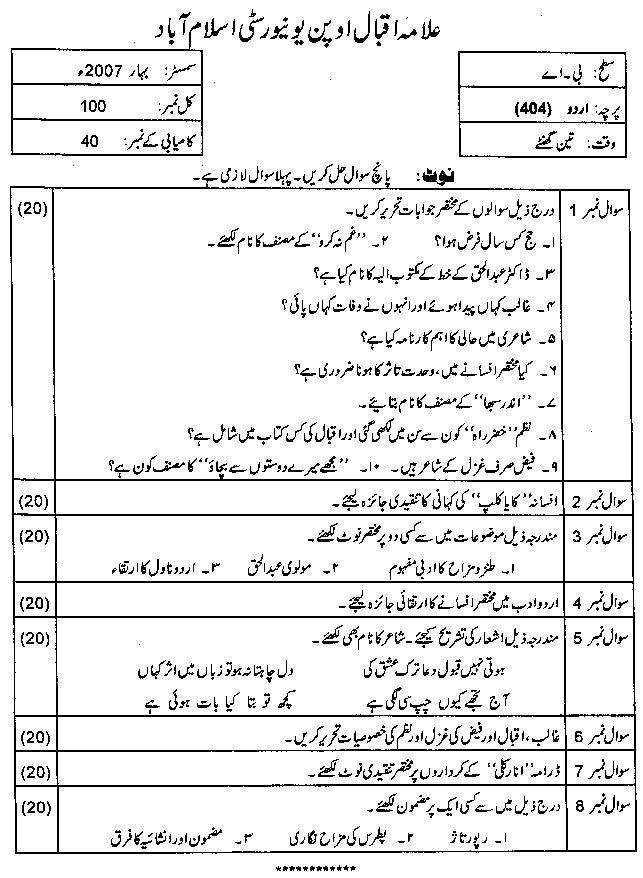 علامہ اقبال اوپن یونیورسٹی اسلام آباد
سطح: بی۔اے
پرچہ: اردو (404)
وقت: تین گھنٹے
سمسٹر: بہار 2007ء
کل نمبر: 100
کامیابی کے نمبر: 40
نوٹ: پانچ سوال حل کریں۔ پہلا سوال لازمی ہے۔
سوال نمبر 1 درج ذیل سوالوں کے مختصر جوابات تحریر کریں۔ (20)
۱۔ حج کس سال فرض ہوا؟ ۲۔ "غم نہ کرو" کے مصنف کا نام لکھئے۔
۳۔ ڈاکٹر عبدالحق کے خط کے مکتوب الیہ کا نام کیا ہے؟
۴۔ غالب کہاں پیدا ہوئے اور انہوں نے وفات کہاں پائی؟
۵۔ شاعری میں حالی کا اہم کارنامہ کیا ہے؟
۶۔ کیا مختصر افسانے میں، وحدت تاثر کا ہونا ضروری ہے؟
۷۔ "اندر سبھا" کے مصنف کا نام بتائیے۔
۸۔ نظم "خضر راہ" کون سے سن میں لکھی گئی اور اقبال کی کس کتاب میں شامل ہے؟
۹۔ فیض صرف غزل کے شاعر ہیں۔ ۱۰۔ "مجھے میرے دوستوں سے بچاؤ" کا مصنف کون ہے؟
سوال نمبر 2 افسانہ "کایا کلپ" کی کہانی کا تنقیدی جائزہ لیجئے۔ (20)
سوال نمبر 3 مندرجہ ذیل موضوعات میں سے کسی دو پر مختصر نوٹ لکھئے۔ (20)
۱۔ طنز و مزاح کا ادبی مفہوم ۲۔ مولوی عبدالحق ۳۔ اردو ناول کا ارتقاء
سوال نمبر 4 اردو ادب میں مختصر افسانے کا ارتقائی جائزہ لیجئے۔ (20)
سوال نمبر 5 مندرجہ ذیل اشعار کی تشریح کیجئے۔ شاعر کا نام بھی لکھئے۔ (20)
ہوتی نہیں قبول دعا ترک عشق کی دل چاہتا نہ ہو تو زباں میں اثر کہاں
آج تجھے کیوں چپ سی لگی ہے کچھ تو بتا کیا بات ہوئی ہے
سوال نمبر 6 غالب، اقبال اور فیض کی غزل اور نظم کی خصوصیات تحریر کریں۔ (20)
سوال نمبر 7 ڈرامہ "انارکلی" کے کرداروں پر مختصر تنقیدی نوٹ لکھئے۔ (20)
سوال نمبر 8 درج ذیل میں سے کسی ایک پر مضمون لکھئے۔ (20)
۱۔ رپورتاژ ۲۔ پطرس کی مزاح نگاری ۳۔ مضمون اور انشائیہ کا فرق
************